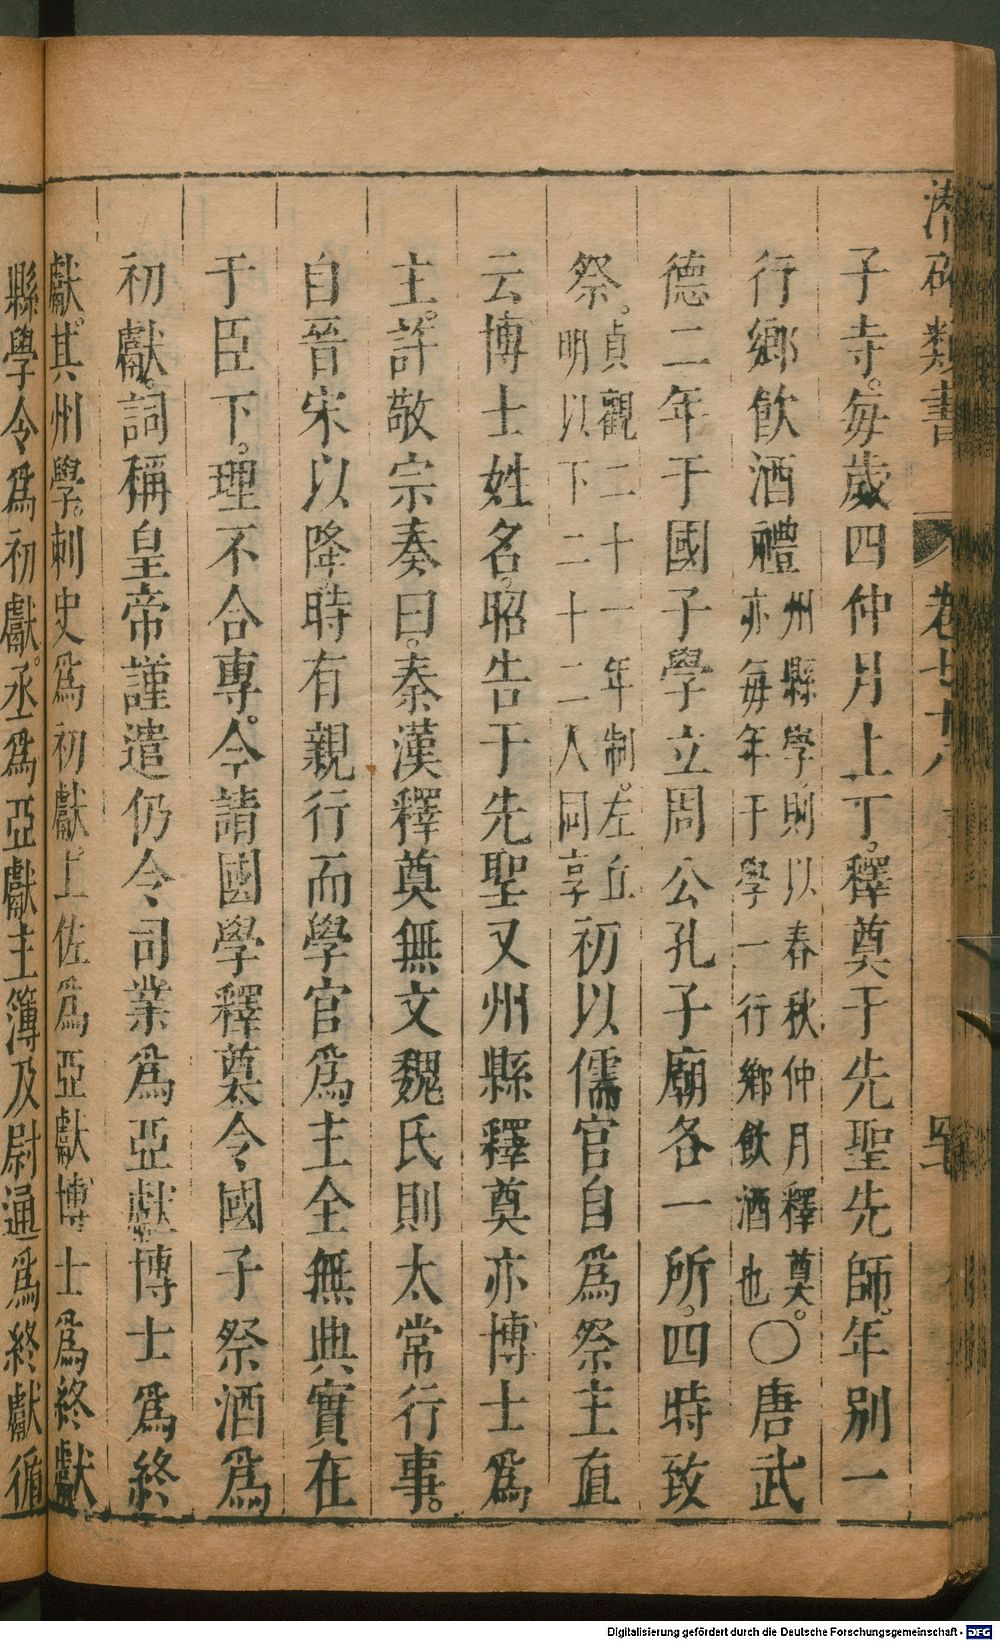 潛確類書 卷七十八
子寺。每歲四仲月上丁。釋奠于先聖先師。年別一
行鄉飲酒禮 州縣學。則以春秋仲月釋奠。亦每年于學一行鄉飲酒也 〇唐武
德二年于國子學立周公孔子廟各一所。四時致
祭。貞觀二十一年制。左丘明以下二十二人同享 初以儒官自爲祭主直
云博士姓名。昭告于先聖又州縣釋奠亦博士爲
主。許敬宗奏曰。秦漢釋奠無文魏氏則太常行事。
自晉宋以降。時有親行而學官爲主全無典實在
于臣下。理不合專。今請國學釋奠令國子祭酒爲
初獻。詞稱皇帝謹遣仍令司業爲亞獻博士爲終
獻。其州學。刺史爲初獻。上佐爲亞獻博士爲終獻
縣學令爲初獻。丞爲亞獻主簿及尉通爲終獻循
Digitalisierung gefördert durch die Deutsche Forschungsgemeinschaft - DFG